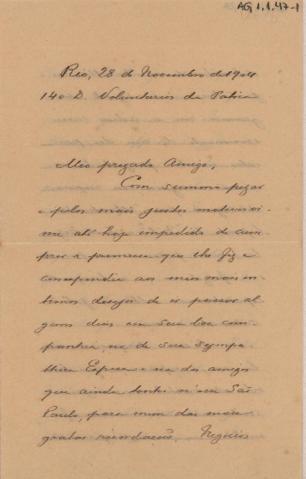 AG 1.1.47-1
Rio, 28 de Novembro de 1904
140 D. Voluntarios da Patria
Meo prezado Amigo,
Com summo pezar
e pelos mais justos motivos vi-
me até hoje impedido de cum-
prir a promessa que lhe fiz e
correspondia aos meus mais in-
timos desejos de ir passar al-
guns dias em sua boa com-
panhia, na de sua sympa-
thica Esposa e na dos amigos
que ainda tenho n'esse São
Paulo, para mim das mais
gratas recordações. Negocios